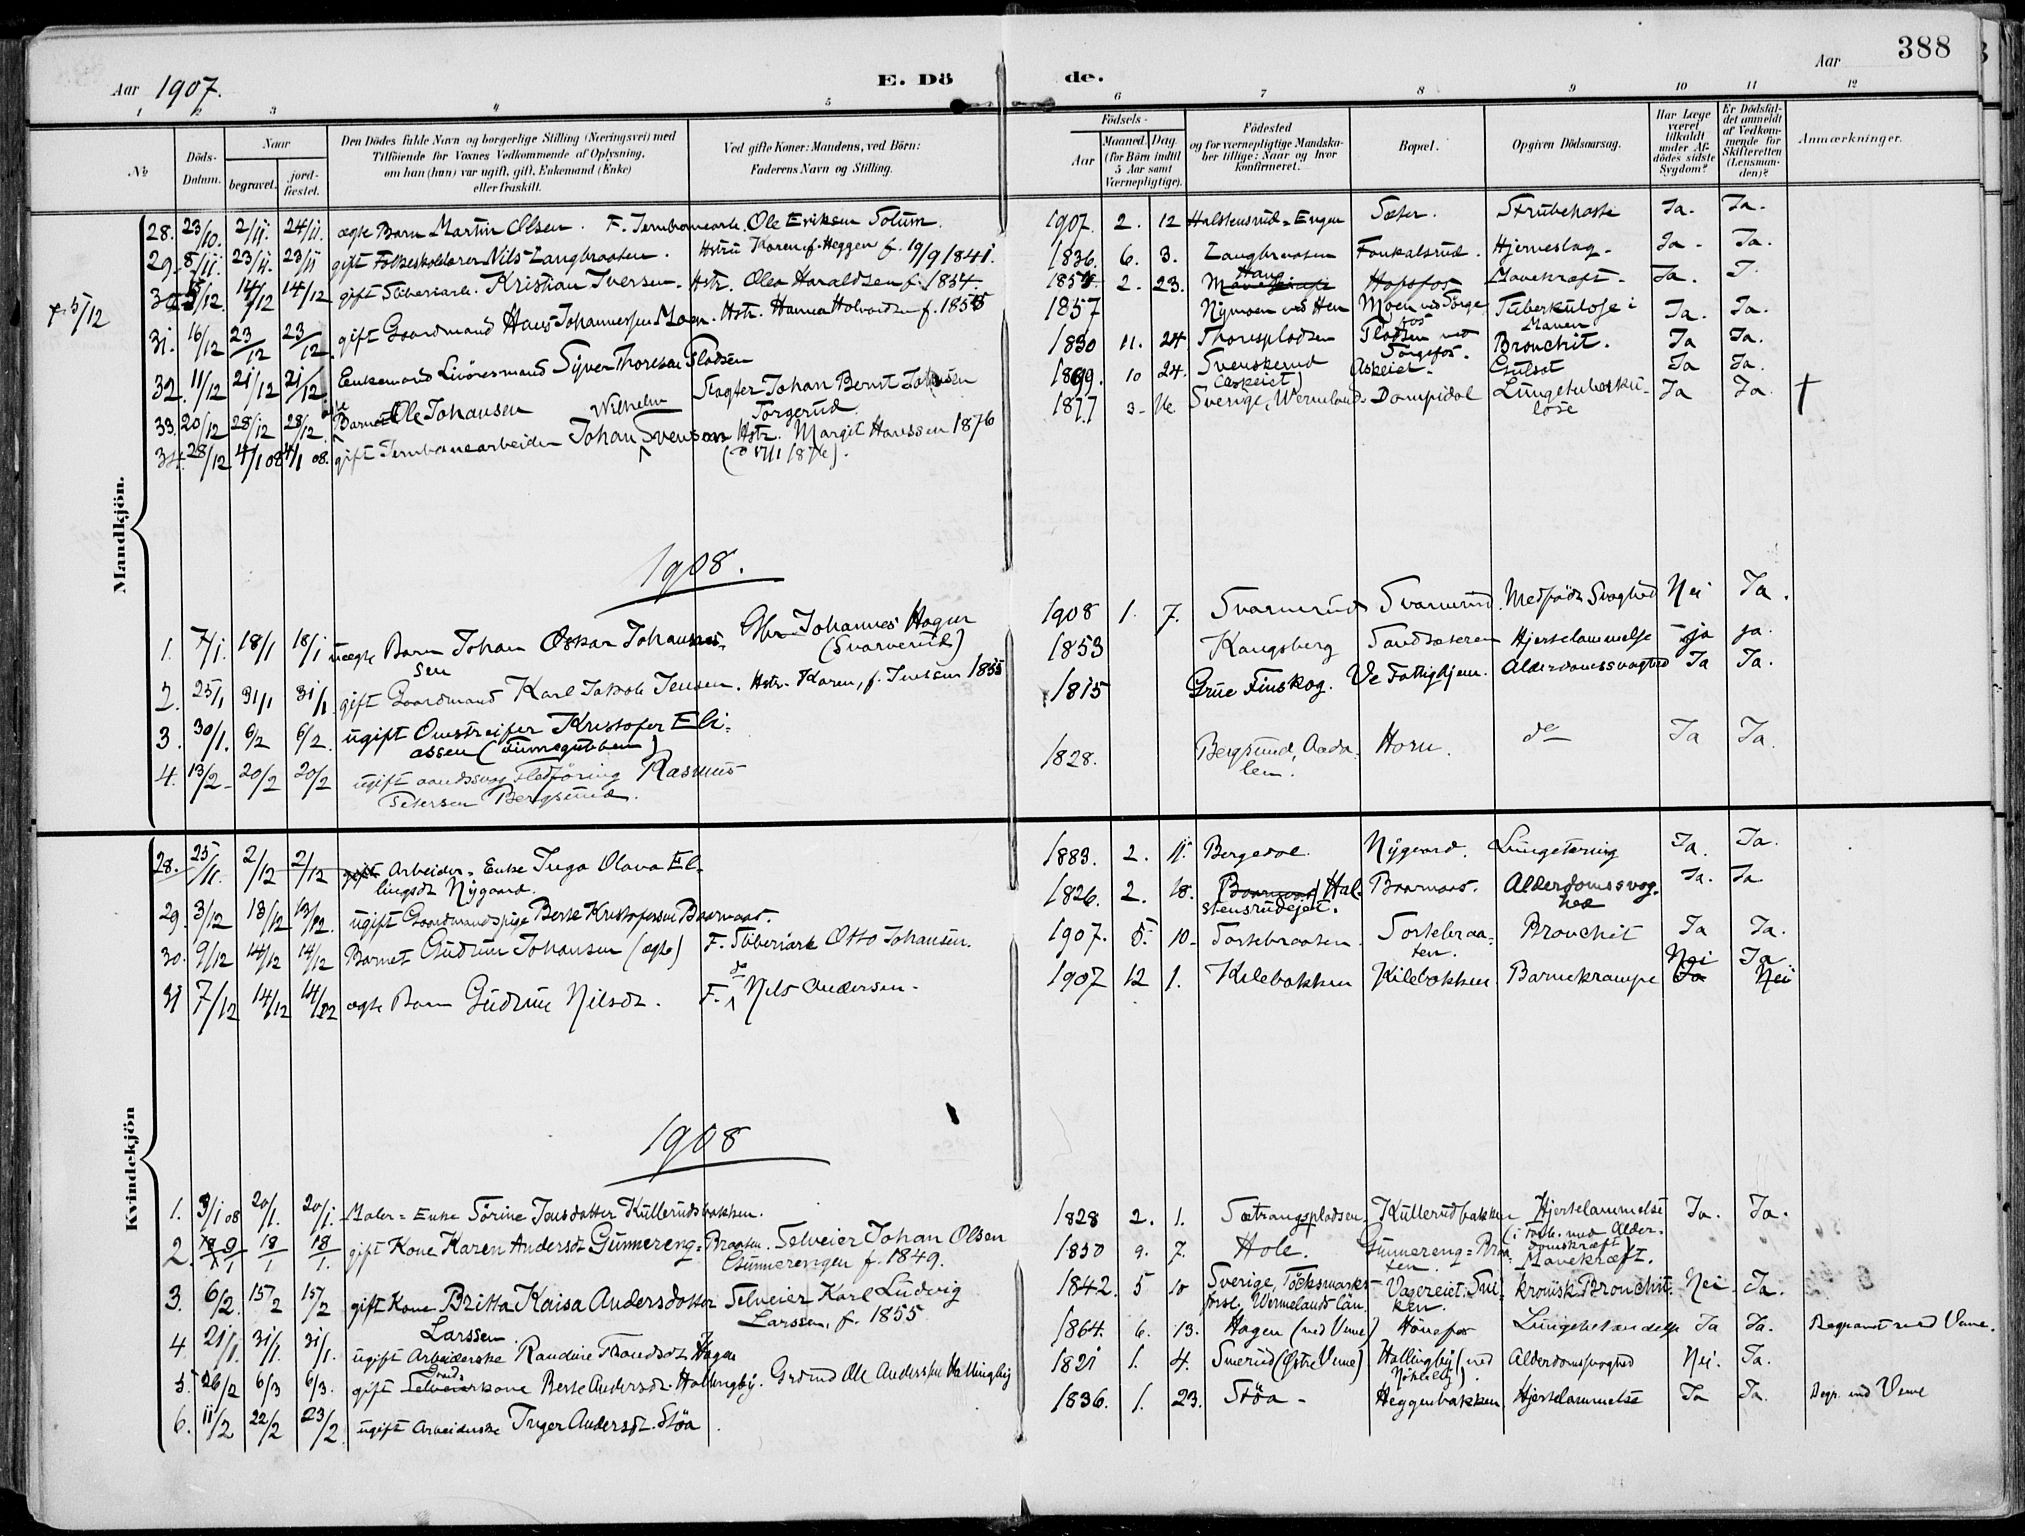 388
Aar 1907.
E. Dö de.
Aar
1 2 3 4 5 6 7 8 9 10 11 12
No
Döds-Datum.
Naar
begravet.
jord-fæstet.
Den Dödes fulde Navn og borgerlige Stilling (Næringsvei) med
Tilföiende for Voxnes Vedkommende af Oplysning,
om han (hun) var ugift, gift, Enkemand (Enke)
eller fraskilt.
Ved gifte Koner: Mandens, ved Börn:
Faderens Navn og Stilling.
Födsels-
Aar
Maaned. Dag.
(for Börn indtil
5 Aar samt
Værnepligtige).
Födested
og for værnepligtige Mandska-
ber tillige: Naar og hvor
konfirmeret.
Bopæl.
Opgiven Dödsaarsag.
Har Læge
været
tilkaldt
under Af-
dödes sidste
Sygdom?
Er Dödsfal-
det anmeldt
af Vedkom-
mende for
Skifteretten
(Lensman-
den)?
Anmærkninger.
Mandkjön.
28. 23/10. 2/11. 24/11. ægte Barn Martin Olsen. F. Jernbanearb. Ole Eriksen Solum. 1907. 2. 12 Halstensrud-Engen Sæter. Strubehoste Ja. Ja.
29. 8/11. 23/11. 23/11 gift Folkeskolelærer Nils Langbraaten. Hstru Karen f. Heggen f. 19/9 1841. 1836. 6. 3. Langbraaten Hjerneslag. Ja. Ja.
† 5/12
14/12 14/12 gift Sliberiarb. Kristian Iversen. Hstr. Olea Haraldsen f. 1854. 2. 23. Haug Hofsfos Mavekræft. Ja. J.
31. 16/12 23/12 23/12 gift Gaardmand Hans Johannessen Moen. Hstr. Hanna Halvorsen f. 1857 Nymoen ved Hen Moen ved Sörge-
fos Tuberkulose i
Maven Ja. Ja.
32. 11/12 21/12 21/12 Enkemand Livöresmand Syver Thoresen Pladsen 1830 11. 24. Thorespladsen Pladsen ved
Sörgefos. Bronchit. Ja Ja.
33. 20/12 28/12 28/12. Barnet Ole Johansen Slagter Johan Bernt Johansen
Torgerud 10 24. Svenskerud
(Askeiet) Askeiet. Gulsot Ja Ja.
34. 28/12 4/1 08 4/1 08. gift Jernbanearbeider Johan Wilhelm Svensson Hstr. Margit Hanssen 1876 1877 3. Sverige, Wermland Dampidal Lungetuberku-
lose Ja Ja. †
1908.
1. 7/1. 18/1 18/1 uægte Barn Johan Oskar Johannes-
sen Gbr. Johannes Hagen
(Svarverud) 1908 1. 7. Svarverud Svarverud. Medfödt Svaghed Nei Ja.
2. 25/1 31/1 31/1. gift Gaardmand Karl Jakob Jensen. Hstr. Karen, f. Jensen 1855 1853 Kongsberg Sandsæteren Hjertelammelse ja ja.
3. 30/1. 6/2 6/2. ugift Omstreifer Kristofer Eli-
assen (Finnegubben) 1815 Grue Finskog. Ve Fattighjem. Alderdomssvaghed Ja Ja.
4. 13/2 20/2 20/2 ugift aandssvag Flodföring Rasmus
Petersen Bergsund. 1828. Bergsund, Aada-
len. Horn. do Ja Ja.
Kvindekjön
28. 25/11. 2/12 2/12 gift Arbeider-Enke Inga Olava El-
lingsdt Nygaard. 1883. 2. 11. Bergedal Nygaard. Lungetæring Ja. Ja.
29. 3/12 13/12 13/12. ugift Gaardmandspige Berte Kristofersen Baarnaas. 1826. 2. 18. (Baarnaas) Hal-
stensrudeiet. Baarnaas. Alderdomssvag-
hed Ja. Ja.
30. 9/12 14/12 14/12 Barnet Gudrun Johansen (ægte) F. Sliberiarb. Otto Johansen. 1907. 5. 10. Tortebraaten Tortebraa-
ten. Bronchit Ja Ja.
31 7/12 14/12 14/12 ægte Barn Gudrun Nilsdt. F. do Nils Andersen. 1907 12 1. Kilebakken Kilebakken Barnekrampe Nei Ja Ja Nei
1908
1. 3/1 08 20/1. 20/1. Maler-Enke Sörine Jensdatter Kullerudsbakken. 1828 2. 1. Sætrangspladsen Kullerudbakken Hjertelammelse
(i Forb. med Alder-
domskræft) Ja. Ja.
2. 18/1 18/1. gift Kone Karen Andersdt Gunnereng-Braaten. Selveier Johan Olsen
Gunnerengen f. 1849. 1850 9. 7. Hole. Gunnereng-Braa-
ten. Mavekræft.
3. 6/2. 15/2 15/2 gift Kone Britta Kaisa Andersdotter
Larssen. Selveier Karl Ludvig
Larssen, f. 1855 1842. 5 10 Sverige, Töcksmarks
forsl. Wermelands Län. kronisk Bronchit. Nei. Ja.
4 21/1. 31/1. 31/1. ugift Arbeiderske Randine Trondsdt Hagen 1864. 6. 13. Hagen (ved Veme) Hönefos Lungebetændelse Ja Ja. Begravet ved Veme.
5. 26/2 6/3 6/3. gift Selveierkone Berte Andersdt. Hallingby. Grdmd Ole Andersen Hallingby 1821 1. 4. Smerud (Östre Veme) Hallingby (ved Alderdomssvaghed Nei. Ja.
6. 11/2 22/2 23/2. ugift Arbeiderske Inger Andersdt. Stöa. 1836. 1. 23. Stöa. Heggenbakken Hjertelammelse Ja Ja. Begr. ved Veme